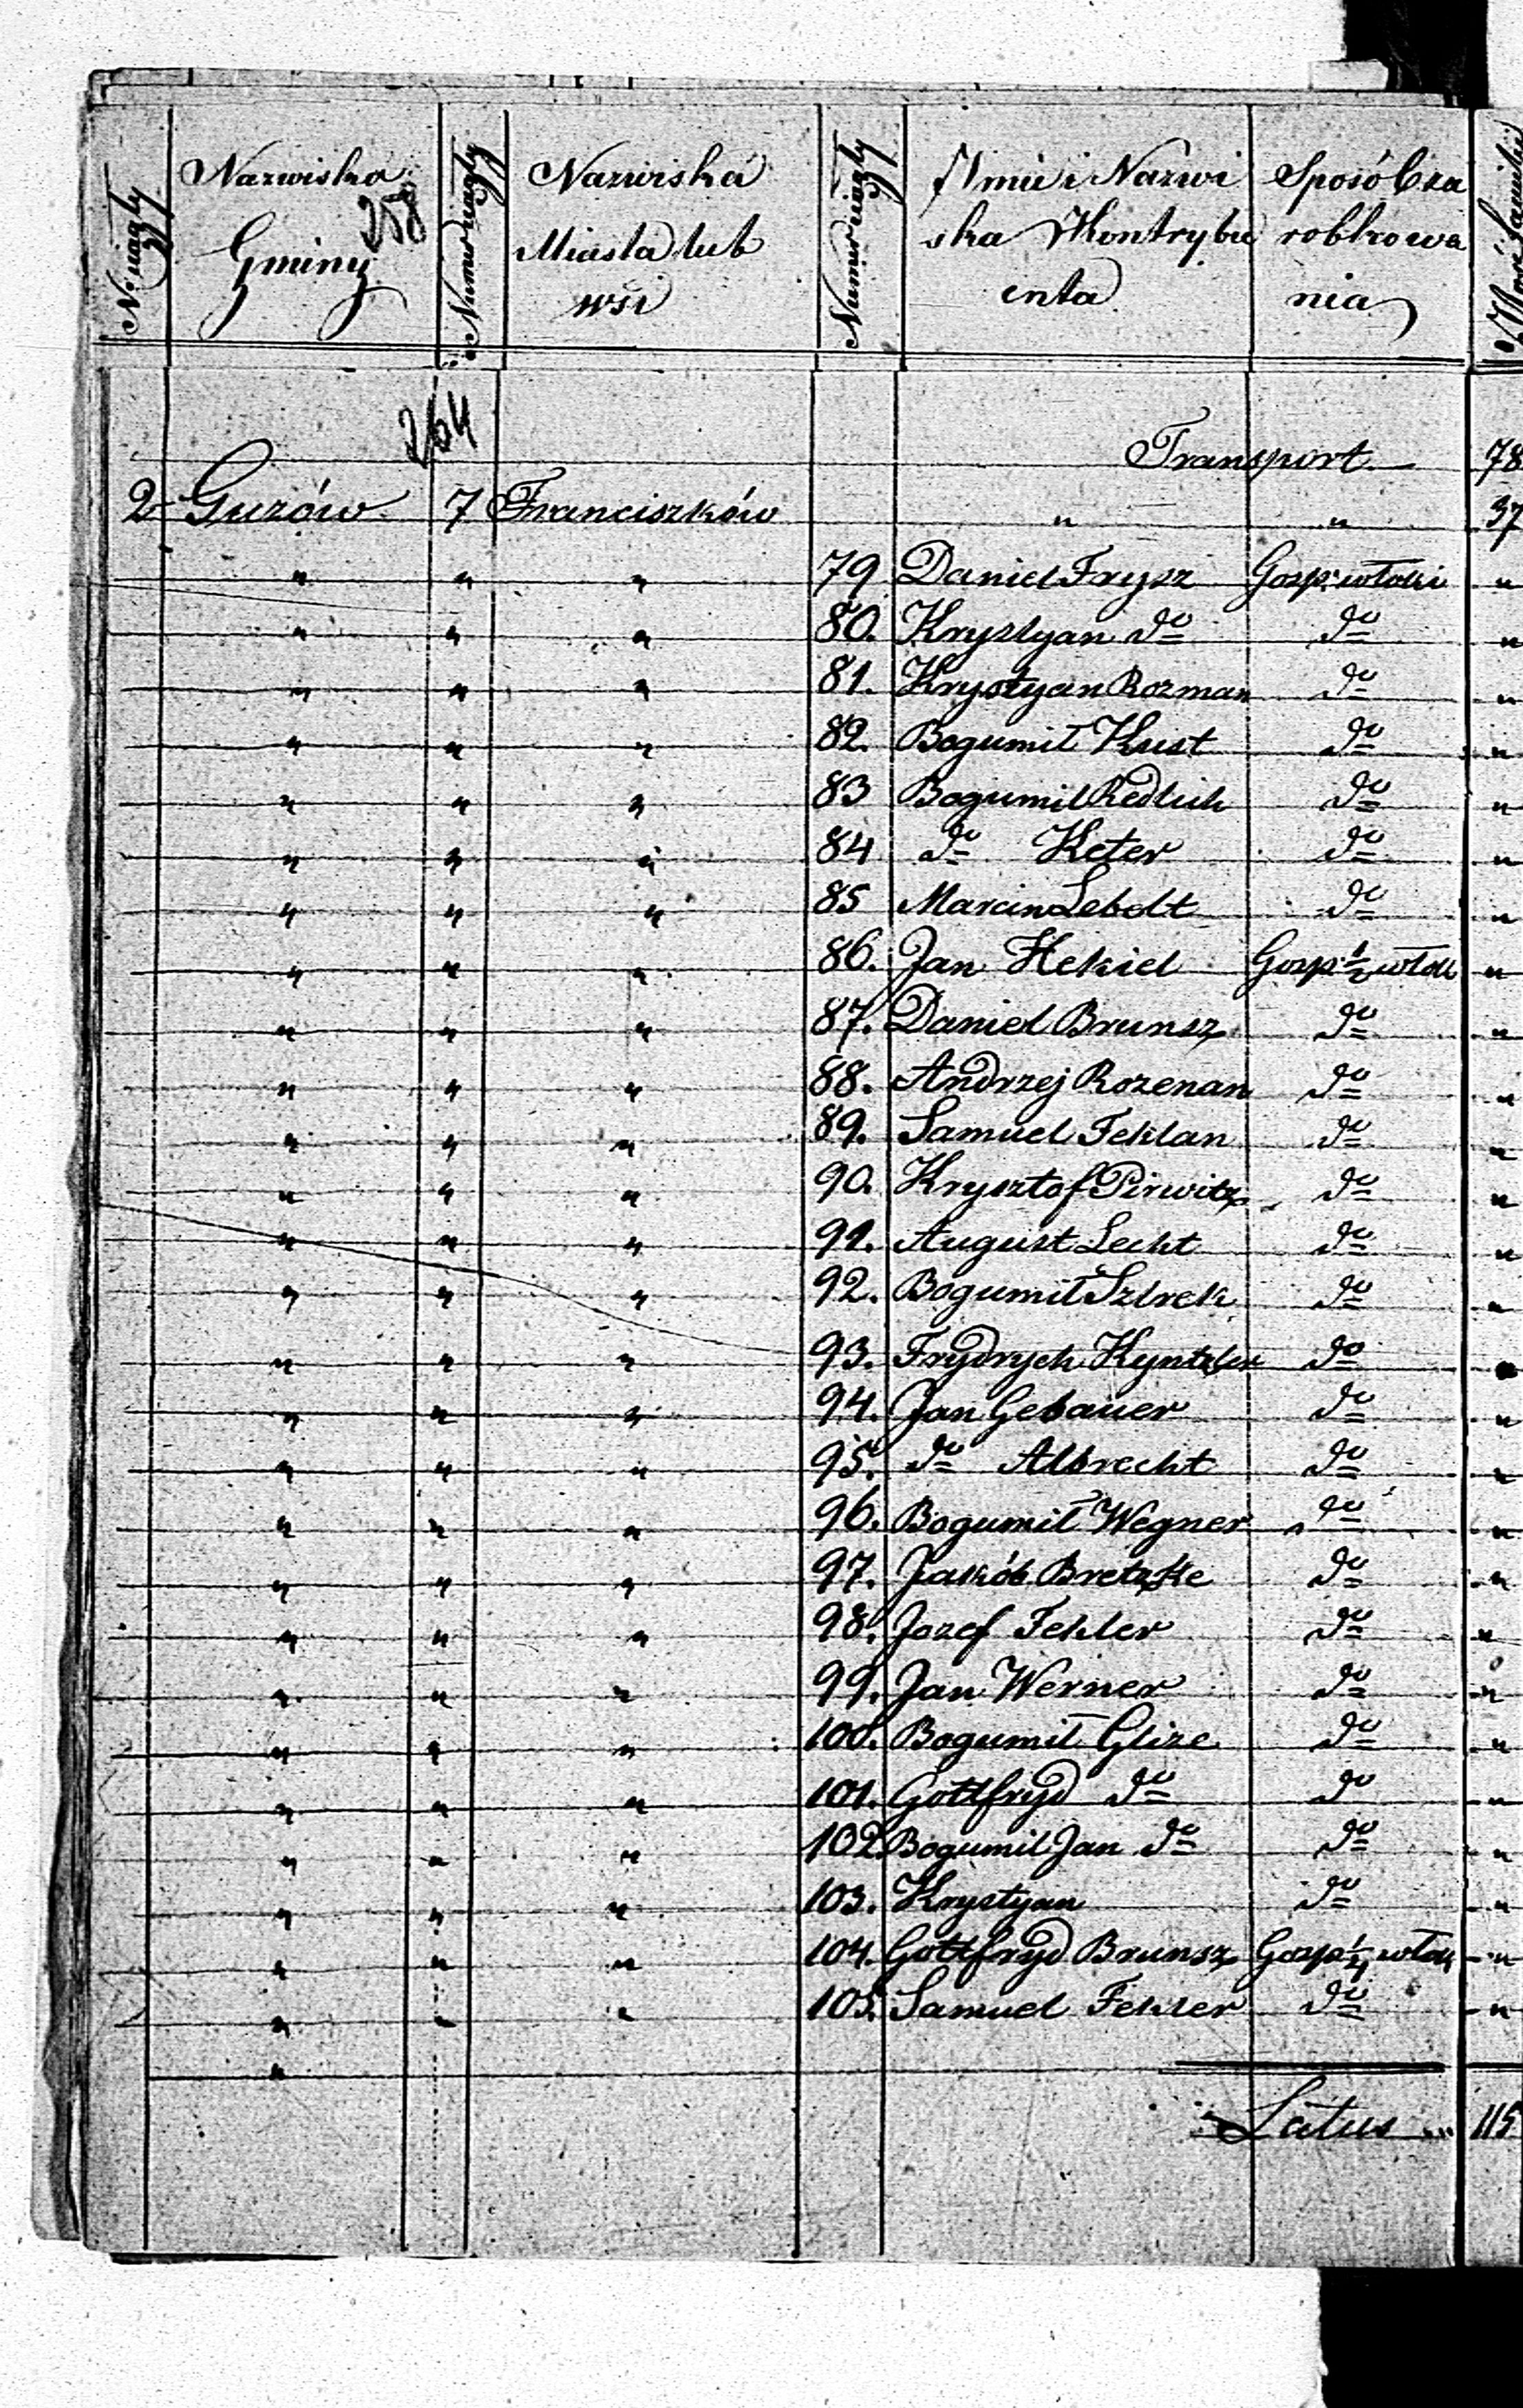 N: ciągły Nazwiska Gminy Numer ciągły Nazwiska Miasta lub wsi Numer ciągły Imie i Nazwiska Kontrybuenta Sposób zarobkowania
258
264
Transport 78
2 Guzów 7 Franciszków " " 37
" " " 79 Daniel Frysz Gosp: włóki "
" " " 80. Krystyan do do "
" " " 81. Krystyan Rozman do "
" " " 82. Bogumił Kust do "
" " " 83 Bogumił Redlich do "
" " " 84 do Keter do "
" " " 85 Marcin Lebelt do "
" " " 86. Jan Hekiel Gosp: ½ włók "
" " " 87. Daniel Brunsz do "
" " " 88. Andrzej Rozenan do "
" " " 89. Samuel Feklan do "
" " " 90. Krysztof Pirwitz do "
" " " 91. August Lecht do "
" " " 92. Bogumił Sztrek do "
" " " 93. Frydrych Kyntzler do "
" " " 94. Jan Gebauer do "
" " " 95. do Albrecht do "
" " " 96. Bogumił Wegner do "
" " " 97. Jakób Bretzke do "
" " " 98. Jozef Fehler do "
" " " 99. Jan Werner do "
" " " 100. Bogumił Glize do "
" " " 101. Gottfryd do do "
" " " 102. Bogumił Jan do do "
" " " 103. Krystyan do "
" " " 104. Gottfryd Brunsz Gosp ¼ włók "
" " " 105. Samuel Fehler do "
"
Latus 115